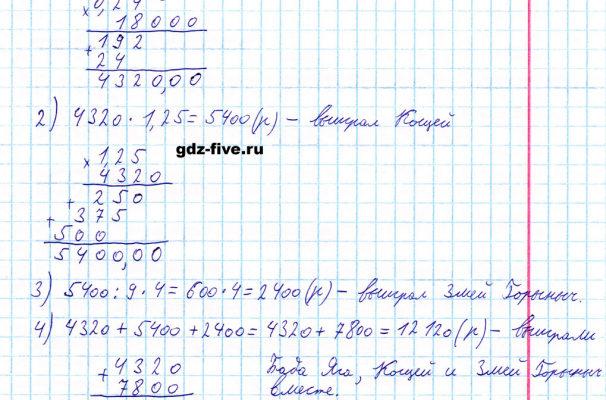 0,24
× 18000
+ 192
24
4320,00
2) 4320 · 1,25 = 5400 (р) – выиграл Кощей
gdz-five.ru
× 1,25
4320
+ 250
+ 375
500
5400,00
3) 5400 : 9 · 4 = 600 · 4 = 2400 (р) – выиграл Змей Горыныч.
4) 4320 + 5400 + 2400 = 4320 + 7800 = 12120 (р) – выиграли
+ 4320 Баба Яга, Кощей и Змей Горыныч
7800 вместе.